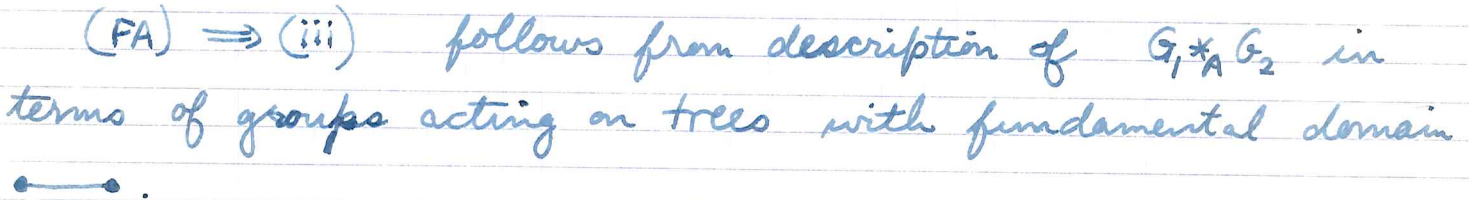 (FA) ⟹ (iii) follows from description of G₁ *_A G₂ in
terms of groups acting on trees with fundamental domain
•—• .